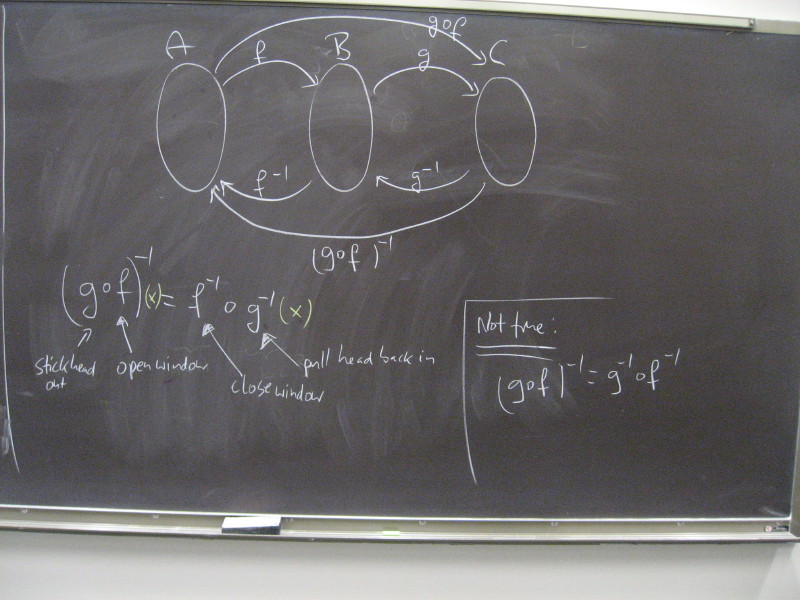 g∘f
A f B g C
f⁻¹ g⁻¹
(g∘f)⁻¹
(g∘f)⁻¹(x) = f⁻¹ ∘ g⁻¹(x)
stick head
out
open window
close window
pull head back in
Not true:
(g∘f)⁻¹ = g⁻¹∘f⁻¹